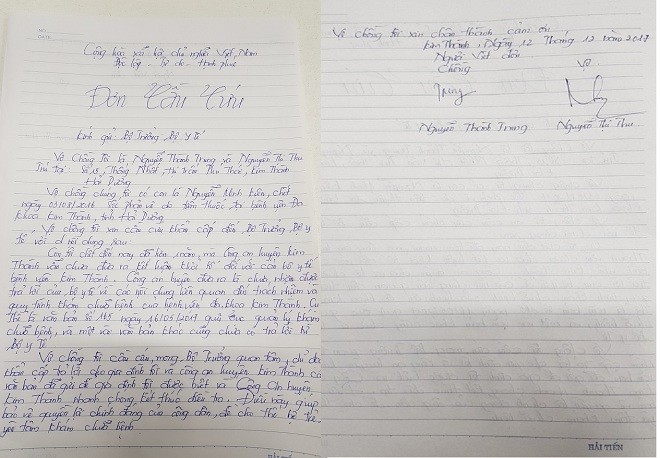 Cộng hòa xã hội chủ nghĩa Việt Nam
Độc lập - Tự do - Hạnh phúc
Đơn Cầu Cứu
Kính gửi Bộ Trưởng Bộ y tế
Vợ Chồng tôi là Nguyễn Thành Trung và Nguyễn Thị Thu
Trú tại: Số 13, Thống Nhất, thị trấn Phú Thái, Kim Thành
Hải Dương
Vợ chồng chúng tôi có con là Nguyễn Minh Kiên, chết
ngày 03/08/2016 phản vệ do tiêm thuốc tại bệnh viện Đa
khoa Kim Thành, tỉnh Hải Dương
Vợ chồng tôi xin cầu cứu khẩn cấp đến Bộ Trưởng Bộ y
tế với nội dung sau:
Con tôi chết đến nay đã hơn 1 năm, mà Công an huyện Kim
Thành vẫn chưa đưa ra kết luận khởi tố đối với cán bộ y tế
bệnh viện Kim Thành. Công an huyện đưa ra là chưa nhận được
trả lời của bộ y tế về các nội dung liên quan đến trách nhiệm và
quy trình khám chữa bệnh của bệnh viện đa khoa Kim Thành. Cụ
thể là văn bản số 165 ngày 16/05/2017 cục quản lý khám
chữa bệnh, và một vài văn bản khác cũng chưa có trả lời từ
Bộ y Tế
Vợ chồng tôi cầu cứu, mong Bộ Trưởng quan tâm, chỉ đạo
khẩn cấp trả lời cho gia đình tôi và công an huyện Kim Thành có
văn bản đã gửi để gia đình tôi được biết và Công An huyện
Kim Thành nhanh chóng kết thúc điều tra. Điều này giúp
bảo vệ quyền lợi chính đáng của công dân, để cho thế hệ trẻ
yên tâm khám chữa bệnh
Vợ chồng tôi xin chân thành cảm ơn
Kim Thành, Ngày 12 Tháng 12 năm 2017
Người Viết đơn
Chồng Vợ
Trung
Nguyễn Thành Trung Nguyễn Thị Thu
HẢI TIẾN
HẢI TIẾN